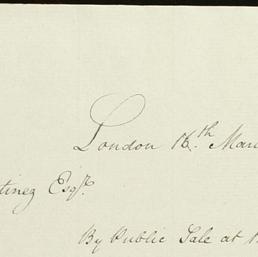 London 16th Mar
tinez Esqr.
By Public Sale at